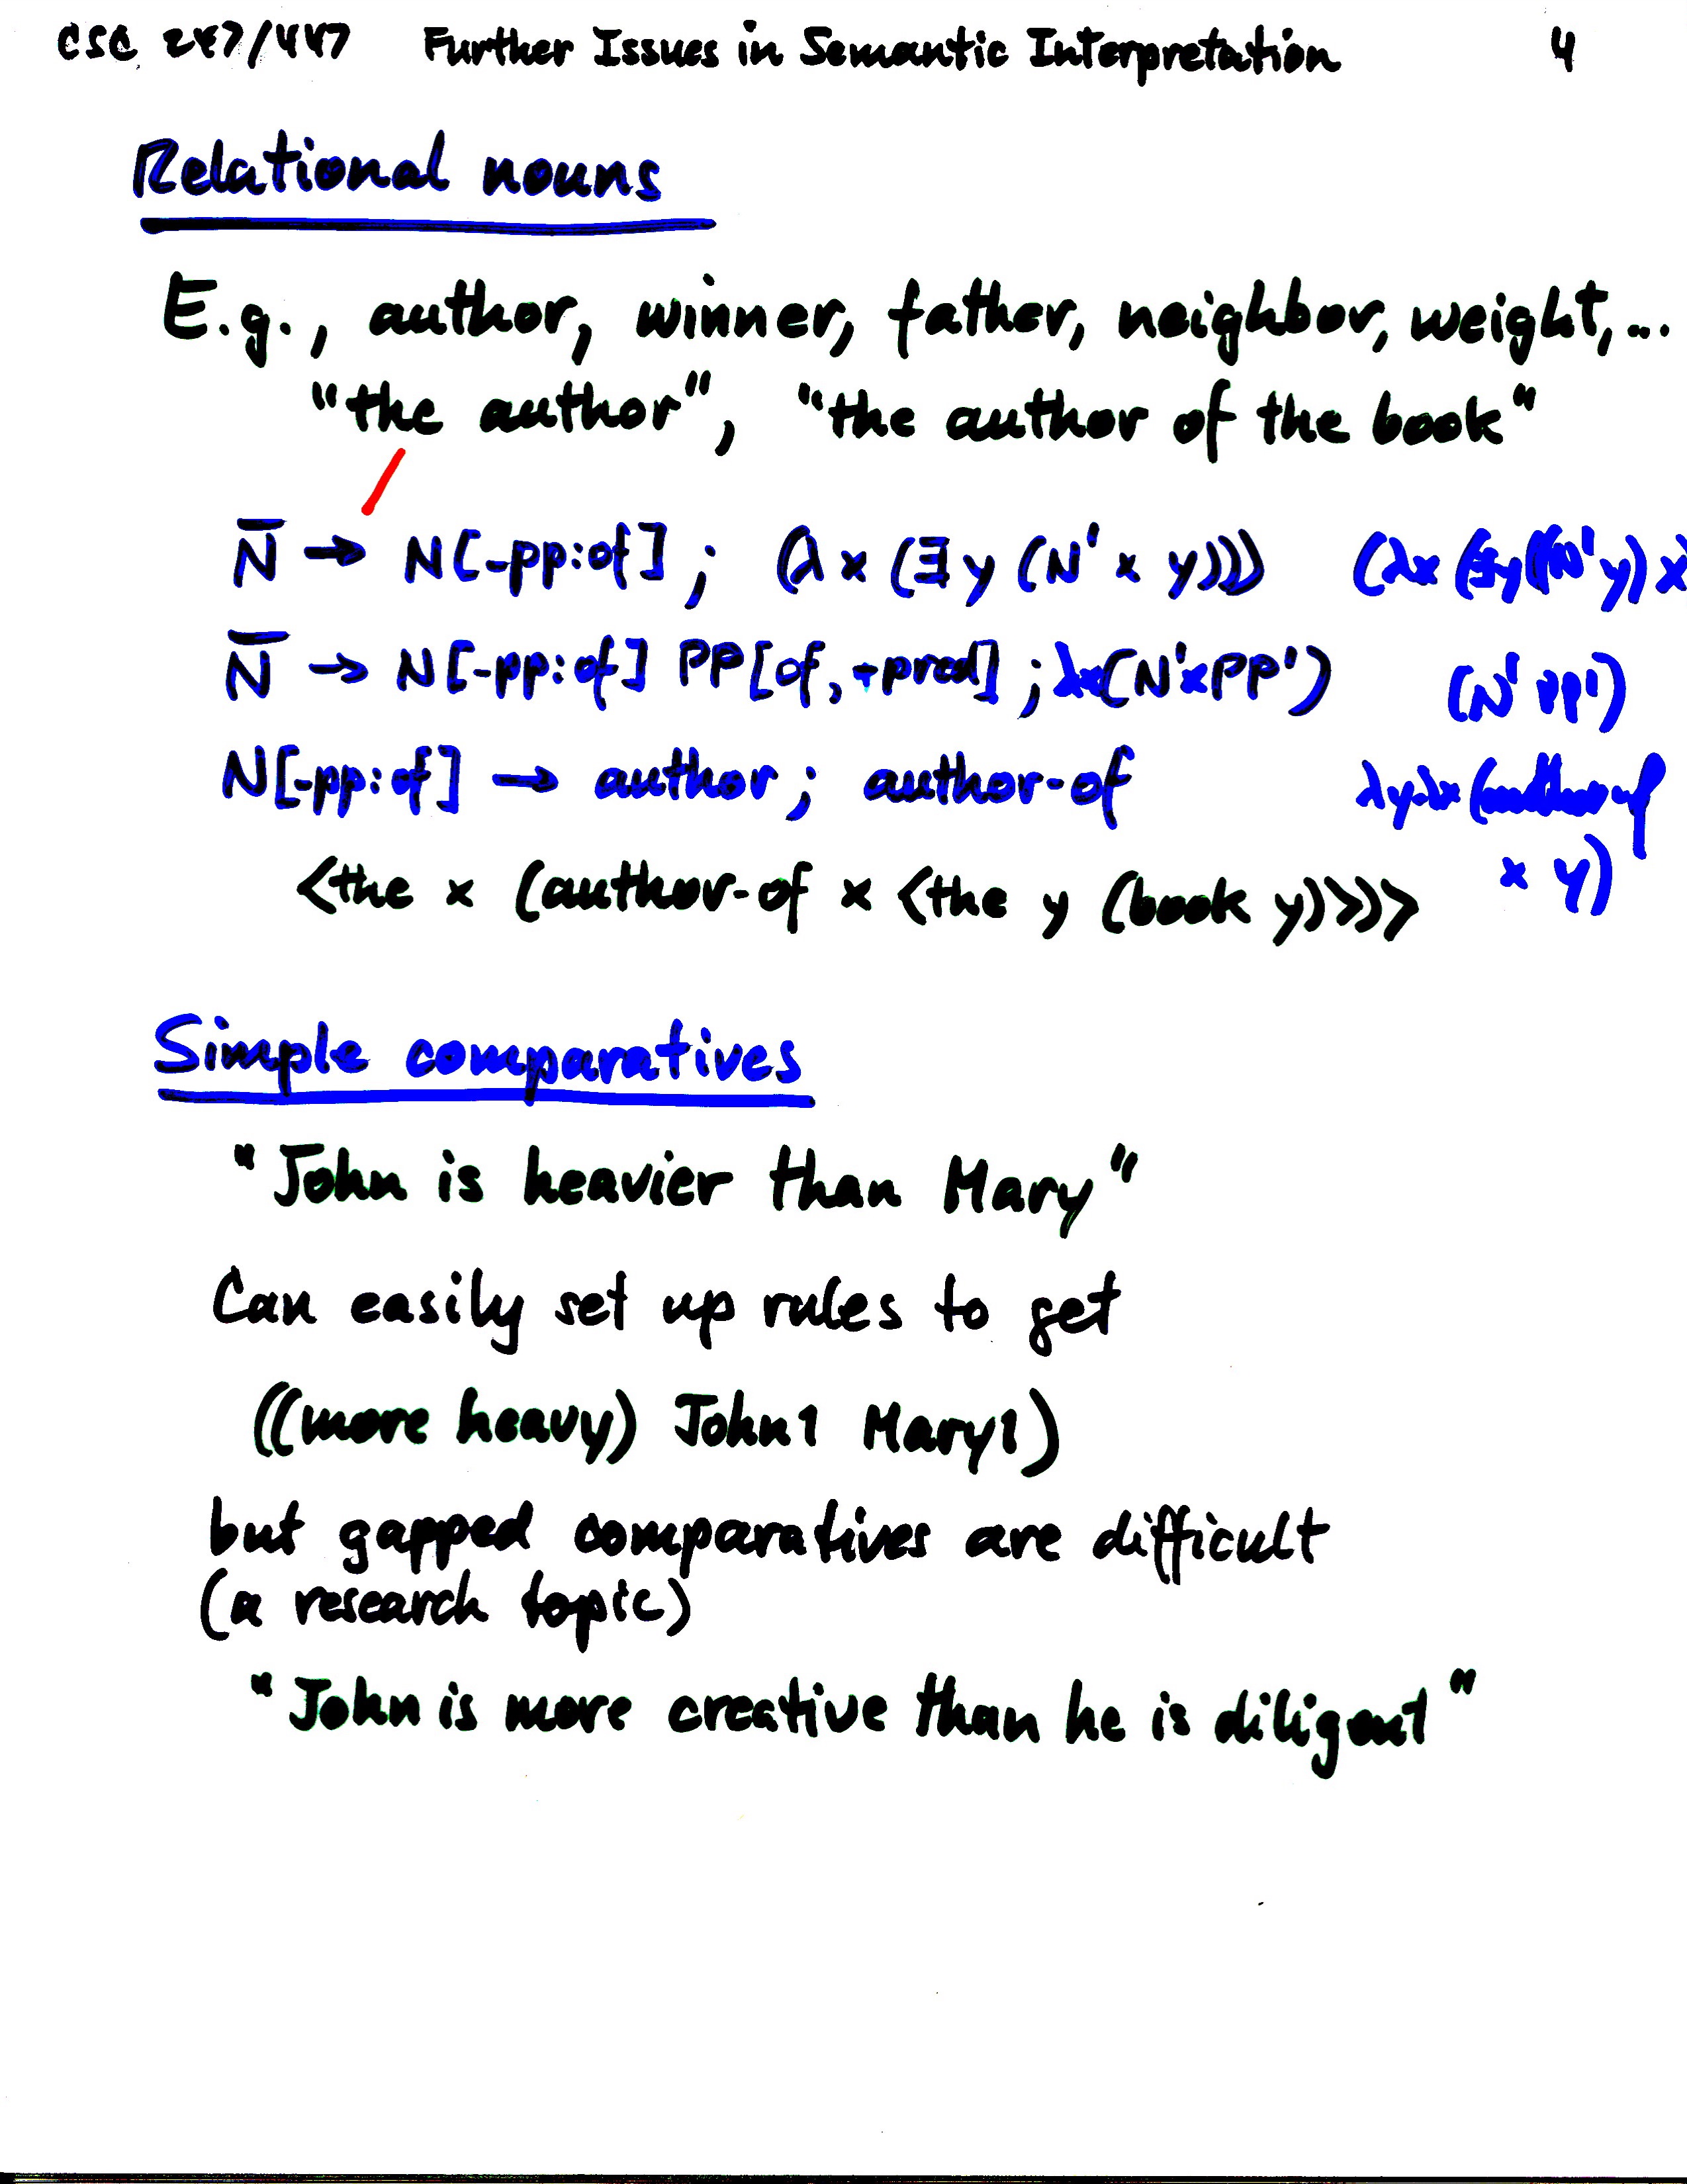 CSC 247/447 Further Issues in Semantic Interpretation 4
Relational nouns
E.g., author, winner, father, neighbor, weight,...
"the author", "the author of the book"
N̄ → N[-pp:of] ; (λx (∃y (N' x y))) (λx (∃y ((N' y) x
N̄ → N[-pp:of] PP[of, +pred] ; λx(N' x PP') (N' PP')
N[-pp:of] → author ; author-of λyλx (author-of
<the x (author-of x <the y (book y)>)> x y)
Simple comparatives
"John is heavier than Mary"
Can easily set up rules to get
((more heavy) John1 Mary1)
but gapped comparatives are difficult
(a research topic)
"John is more creative than he is diligent"